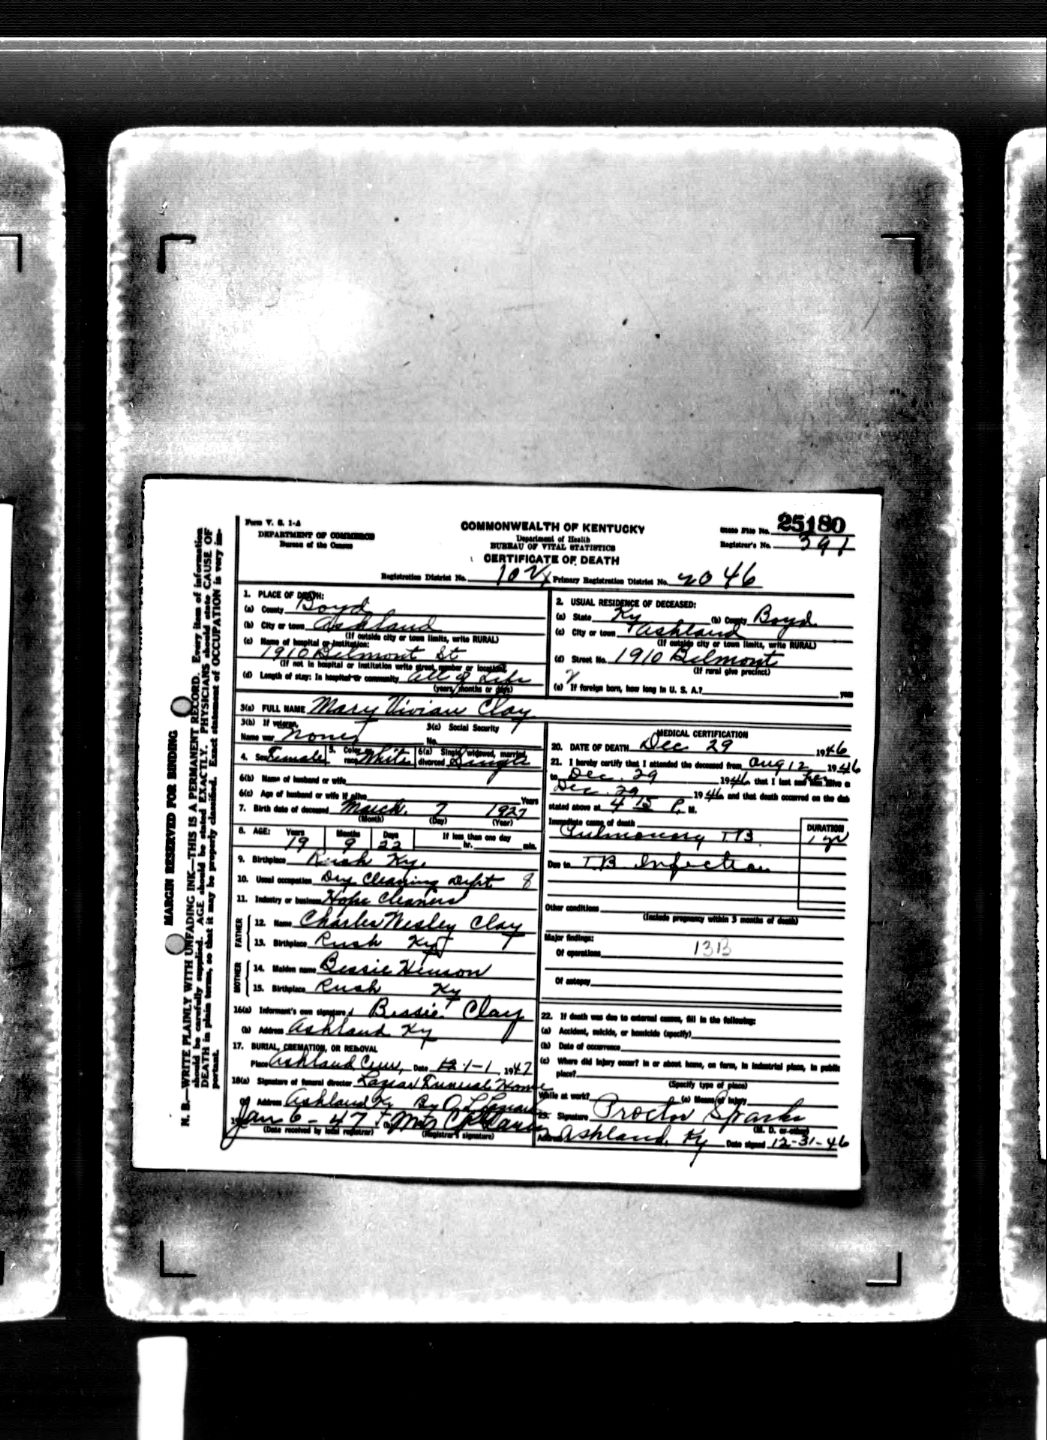 Form V. S. 1-A
DEPARTMENT OF COMMERCE
Bureau of the Census
COMMONWEALTH OF KENTUCKY
Department of Health
BUREAU OF VITAL STATISTICS
CERTIFICATE OF DEATH
State File No. 25180
Registrar's No. 391
Registration District No. Primary Registration District No. 2046
1. PLACE OF DEATH:
(a) County Boyd
(b) City or town Ashland
(If outside city or town limits, write RURAL)
(c) Name of hospital or institution:
1910 Belmont St
(If not in hospital or institution write street number or location)
(d) Length of stay: In hospital or community all of Life
(years, months or days)
2. USUAL RESIDENCE OF DECEASED:
(a) State Ky (b) County Boyd
(c) City or town Ashland
(If outside city or town limits, write RURAL)
(d) Street No. 1910 Belmont
(If rural give precinct)
(e) If foreign born, how long in U. S. A.? years
3(a) FULL NAME Mary Vivian Clay
3(b) If veteran,
Name war None
3(c) Social Security
No.
4. Sex Female 5. Color or race White 6(a) Single, widowed, married, divorced Single
6(b) Name of husband or wife
6(c) Age of husband or wife if alive Years
7. Birth date of deceased March 7 1927
(Month) (Day) (Year)
8. AGE: Years Months Days If less than one day
19 9 22 hr. min.
9. Birthplace Rush Ky.
10. Usual occupation Dry Cleaning Dept 8
11. Industry or business Hope Cleaners
FATHER
12. Name Charles Wesley Clay
13. Birthplace Rush Ky
MOTHER
14. Maiden name Bessie Henson
15. Birthplace Rush Ky
16(a) Informant's own signature Bessie Clay
(b) Address Ashland Ky
17. BURIAL, CREMATION, OR REMOVAL
Place Ashland Cem, Date 1-1, 1947
18(a) Signature of funeral director Lazear Funeral Home
Address Ashland Ky By
Jan 6-47 Mrs
(Date received by local registrar) (Registrar's signature)
MEDICAL CERTIFICATION
20. DATE OF DEATH Dec 29 1946
21. I hereby certify that I attended the deceased from Aug 12, 1946
to Dec. 29 1946 that I last saw her alive on
Dec. 29 1946 and that death occurred on the date
stated above at 4 15 P. M.
Immediate cause of death DURATION
Pulmonary TB 1 yr
Due to TB Infection
Other conditions
(Include pregnancy within 3 months of death)
Major findings:
Of operations 13B
Of autopsy
22. If death was due to external causes, fill in the following:
(a) Accident, suicide, or homicide (specify)
(b) Date of occurrence
(c) Where did injury occur? in or about home, on farm, in industrial place, in public
place?
(Specify type of place)
While at work? (e) Means of injury
23. Signature Proctor Sparks
(M. D. or other)
Address Ashland, Ky Date signed 12-31-46
MARGIN RESERVED FOR BINDING
N. B.—WRITE PLAINLY WITH UNFADING INK—THIS IS A PERMANENT RECORD. Every item of information
should be carefully supplied. AGE should be stated EXACTLY. PHYSICIANS should state CAUSE OF
DEATH in plain terms, so that it may be properly classified. Exact statement of OCCUPATION is very im-
portant.